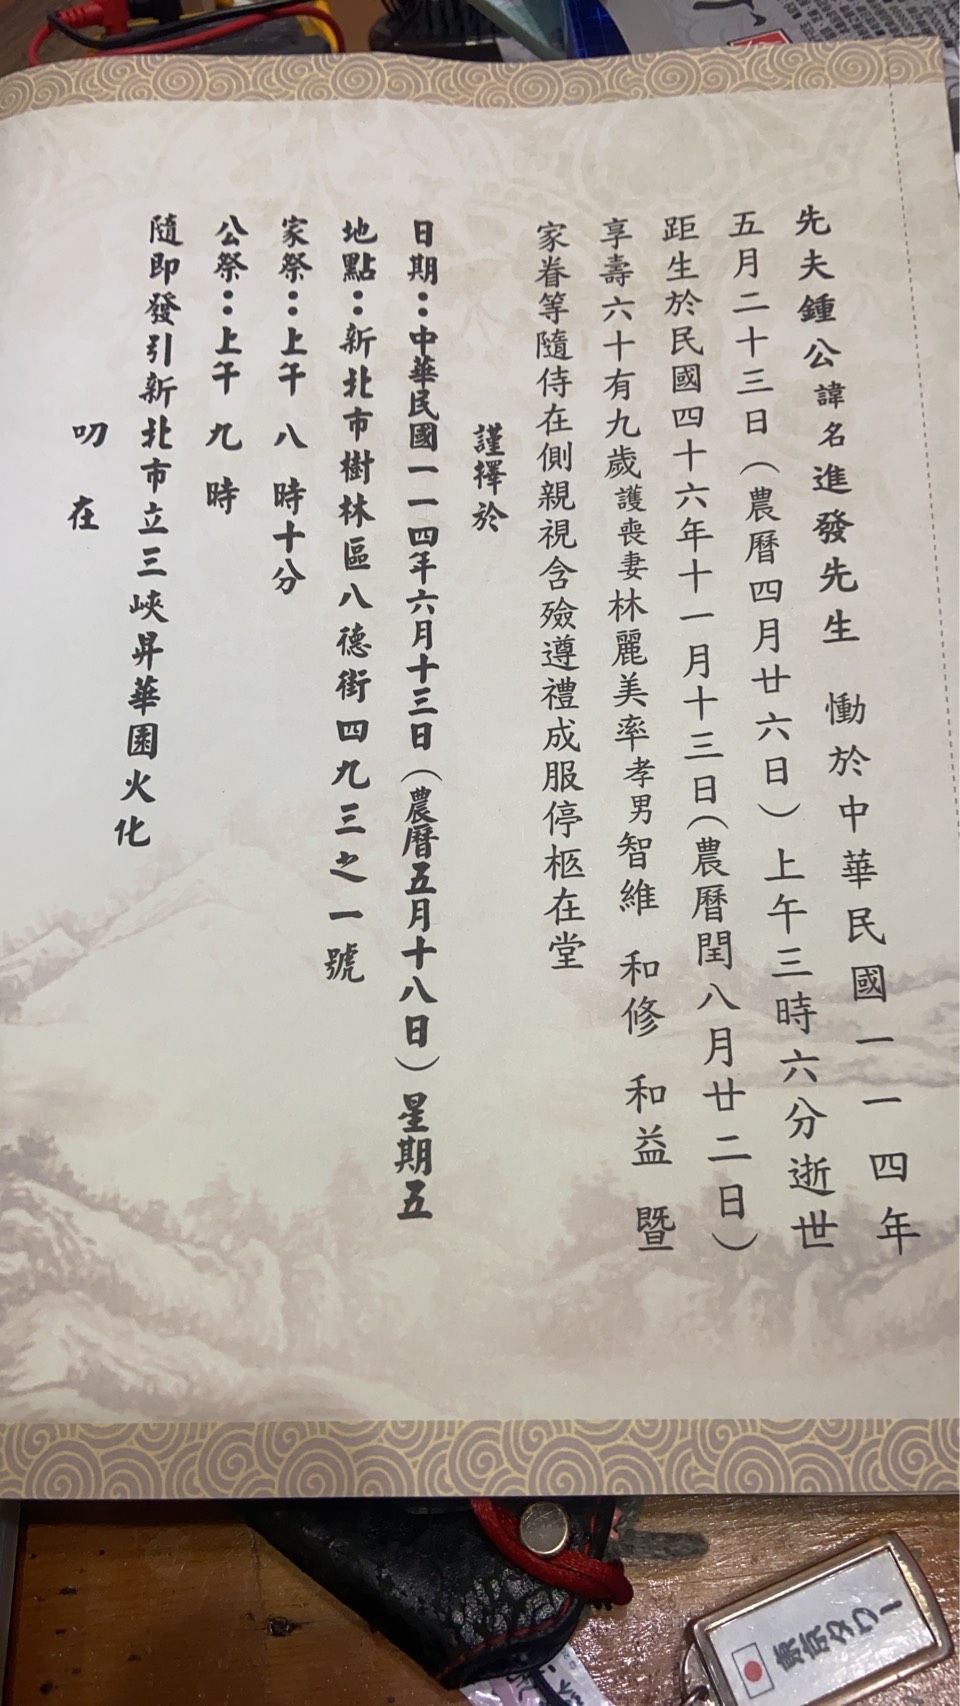 先夫鍾公諱名進發先生　慟於中華民國一一四年
五月二十三日（農曆四月廿六日）上午三時六分逝世
距生於民國四十六年十一月十三日（農曆閏八月廿二日）
享壽六十有九歲護喪妻林麗美率孝男智維　和修　和益　暨
家眷等隨侍在側親視含殮遵禮成服停柩在堂
謹擇於
日期：中華民國一一四年六月十三日（農曆五月十八日）星期五
地點：新北市樹林區八德街四九三之一號
家祭：上午八時十分
公祭：上午九時
隨即發引新北市立三峽昇華園火化
叨在
東京タワー